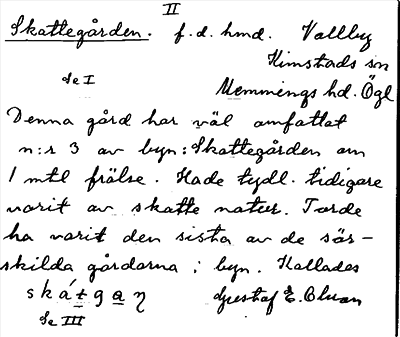 II
Skattegården. f.d. hmd. Vallby
Kimstads sn
Se I
Memmings hd. Ögl
Denna gård har väl omfattat
n:r 3 av byn: Skattegården om
1 mtl frälse. Hade tydl. tidigare
varit av skatte natur. Torde
ha varit den sista av de sär-
skilda gårdarna i byn. Kallades
skátgaŋ Gustaf E. Olsson
Se III